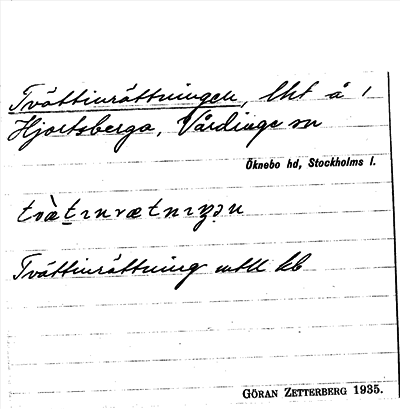 Tvättinrättningen, lht å 1
Hjortsberga, Vårdinge sn
Öknebo hd, Stockholms l.
Tvättinrättning
GÖRAN ZETTERBERG 1935.